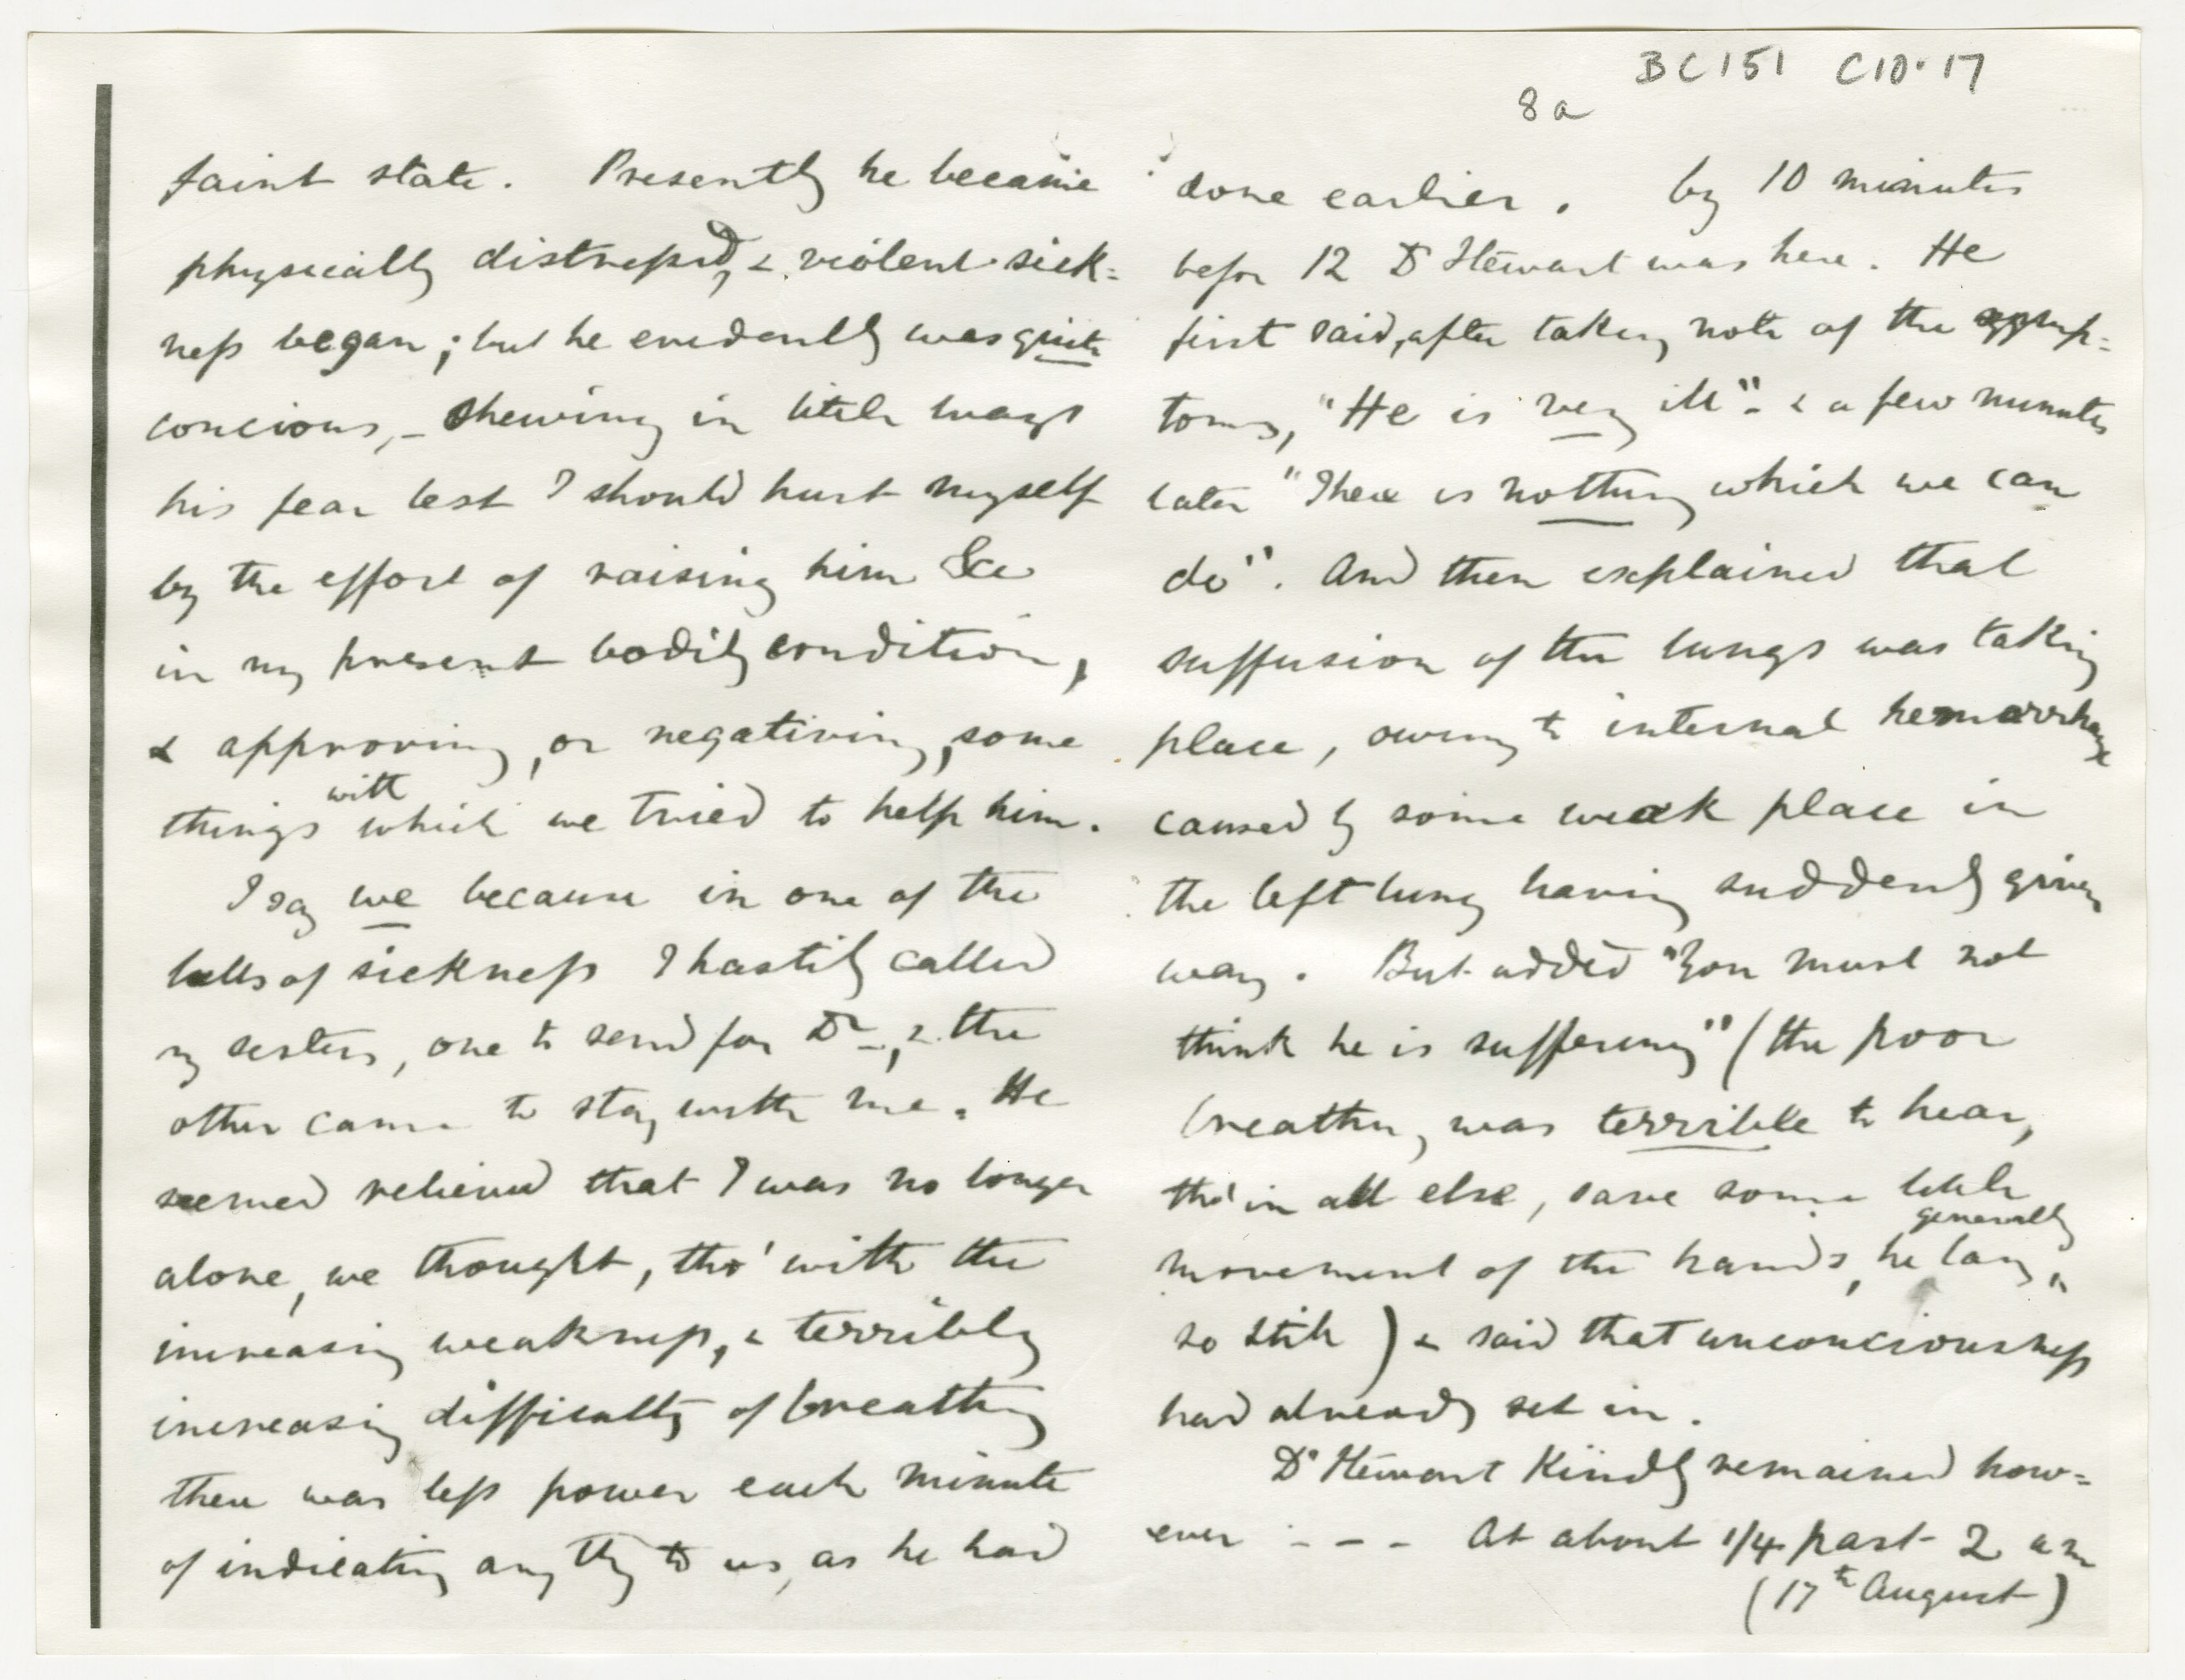 BC151 C10.17
8a
faint state. Presently he became
physically distressed, & violent sick=
ness began; but he evidently was quite
concious, - shewing in little ways
his fear lest I should hurt myself
by the effort of raising him &c
in my present bodily condition,
& approving, or negativing, some
with
things which we tried to help him.
I say we because in one of the
lulls of sickness I hastily called
my sisters, one to send for Dr -, & the
other came to stay with me. He
seemed relieved that I was no longer
alone, we thought, tho' with the
increasing weakness, & terribly
increasing difficulty of breathing
there was less power each minute
of indicating any thg to us, as he had
done earlier. by 10 minutes
before 12 Dr Stewart was here. He
first said, after taking note of the symp=
toms, "He is very ill" - & a few minutes
later "There is nothing which we can
do". And then explained that
suffusion of the lungs was taking
place, owing to internal hemorrhage
caused by some weak place in
the left lung having suddenly given
way. But added "You must not
think he is suffering" (the poor
breathing was terrible to hear,
tho' in all else, save some little
generally
movement of the hands, he lay "
so still) & said that unconciousness
had already set in.
Dr Stewart kindly remained how=
ever - - - At about 1/4 past 2 am
(17th August)